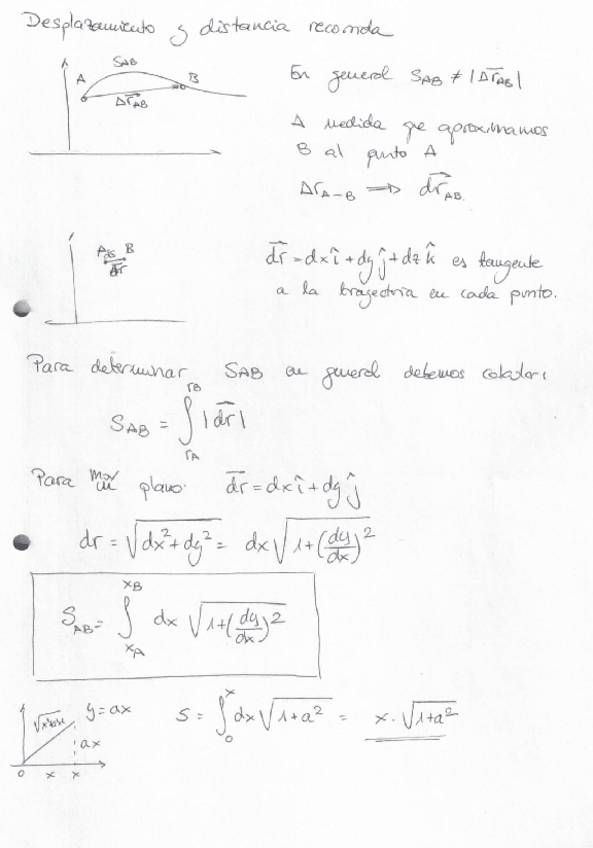 Desplazamiento y distancia recorrida
S_AB
A
B
Δr⃗_AB
En general S_AB ≠ |Δr⃗_AB|
A medida que aproximamos
B al punto A
Δr_A-B ⟹ dr⃗_AB.
A ds B
dr⃗
dr⃗ = dx î + dy ĵ + dz k̂ es tangente
a la trayectoria en cada punto.
Para determinar S_AB en general debemos calcular:
S_AB = ∫_rA^rB |dr⃗|
Para mov en plano: dr⃗ = dx î + dy ĵ
dr = √(dx² + dy²) = dx √(1+(dy/dx)²)
S_AB = ∫_xA^xB dx √(1+(dy/dx)²)
y = ax
ax
0 x x
S = ∫_0^x dx √(1+a²) = x · √(1+a²)